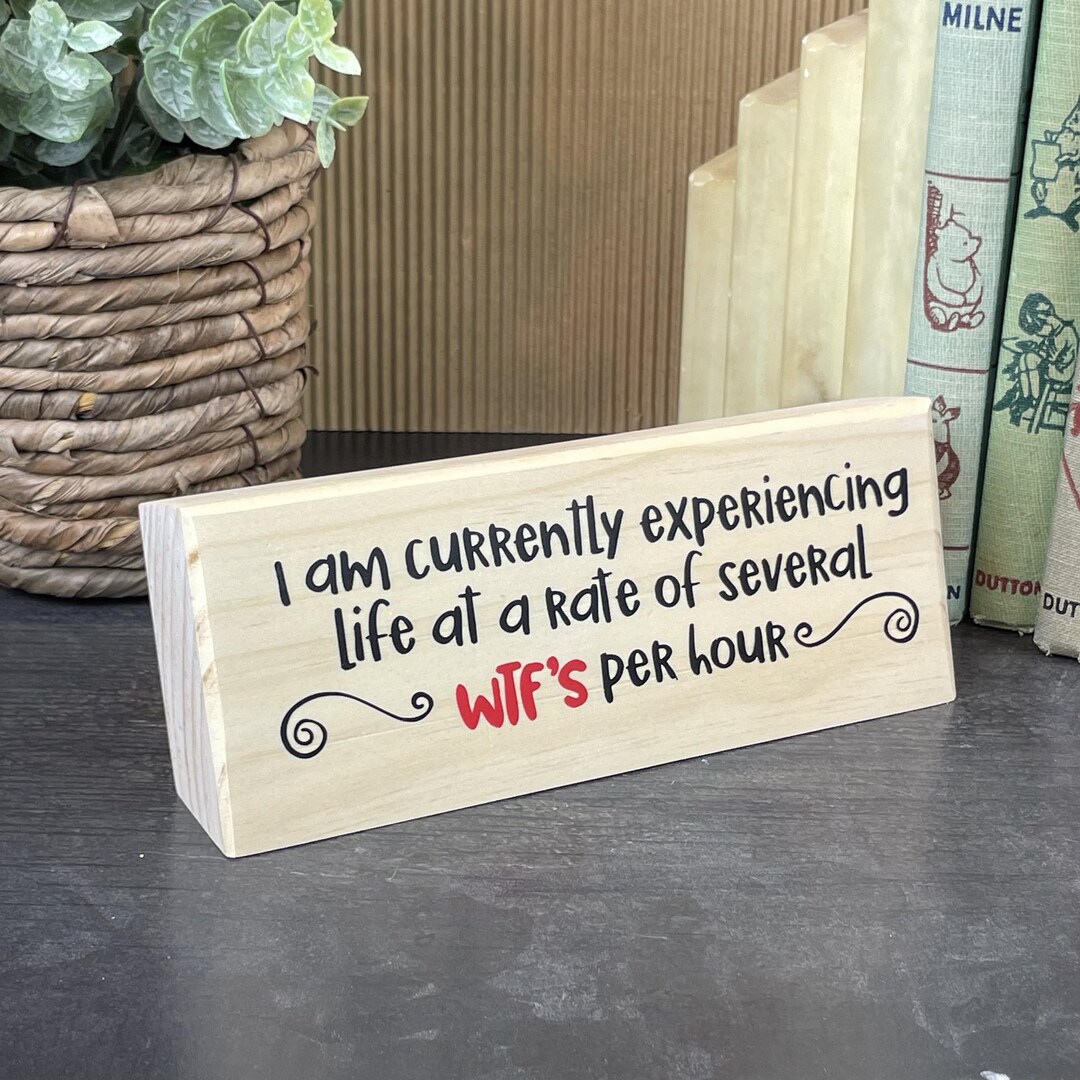 I am currently experiencing
life at a rate of several
WTF's per hour
MILNE
N
DUTTON
DUT